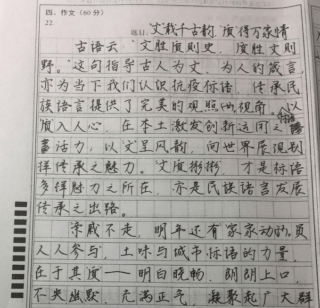 四、作文(60分)
22.
题目:"文载千古韵,质得万家情
古语云"文胜质则史,质胜文则
野。"这句指导古人为文、为人的箴言,
亦为当下我们认识抗疫标语,传承民
族语言提供了完美的观照的视角。以
质入人心,在本土激发创新运用之标语
活力,以文呈风韵,向世界展现别
样传承之魅力。"文质彬彬",才是标语
多样魅力之所在,亦是民族语言发展
传承之出路。
"亲戚不走,明年还有""家家动的,员
人人参与",土味与城市标语的力量,
在于其质——明白晓畅,朗朗上口,
不失幽默,充满正气,凝聚起广大群